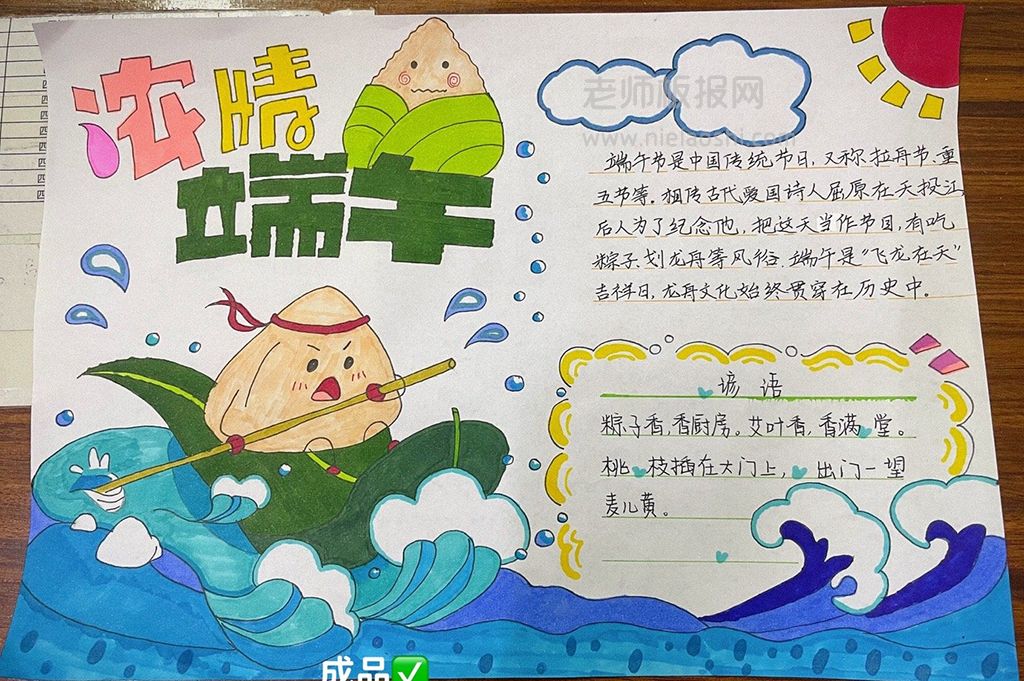 浓情
端午
老师版报网
www.nielaoshi.com
端午节是中国传统节日，又称拉丹节、重
五节等。相传古代爱国诗人屈原在天投江
后人为了纪念他，把这天当作节日，有吃
粽子、划龙舟等风俗。端午是“飞龙在天”
吉祥日，龙舟文化始终贯穿在历史中。
谚语
粽子香，香厨房。艾叶香，香满堂。
桃枝插在大门上，出门一望
麦儿黄。
成品